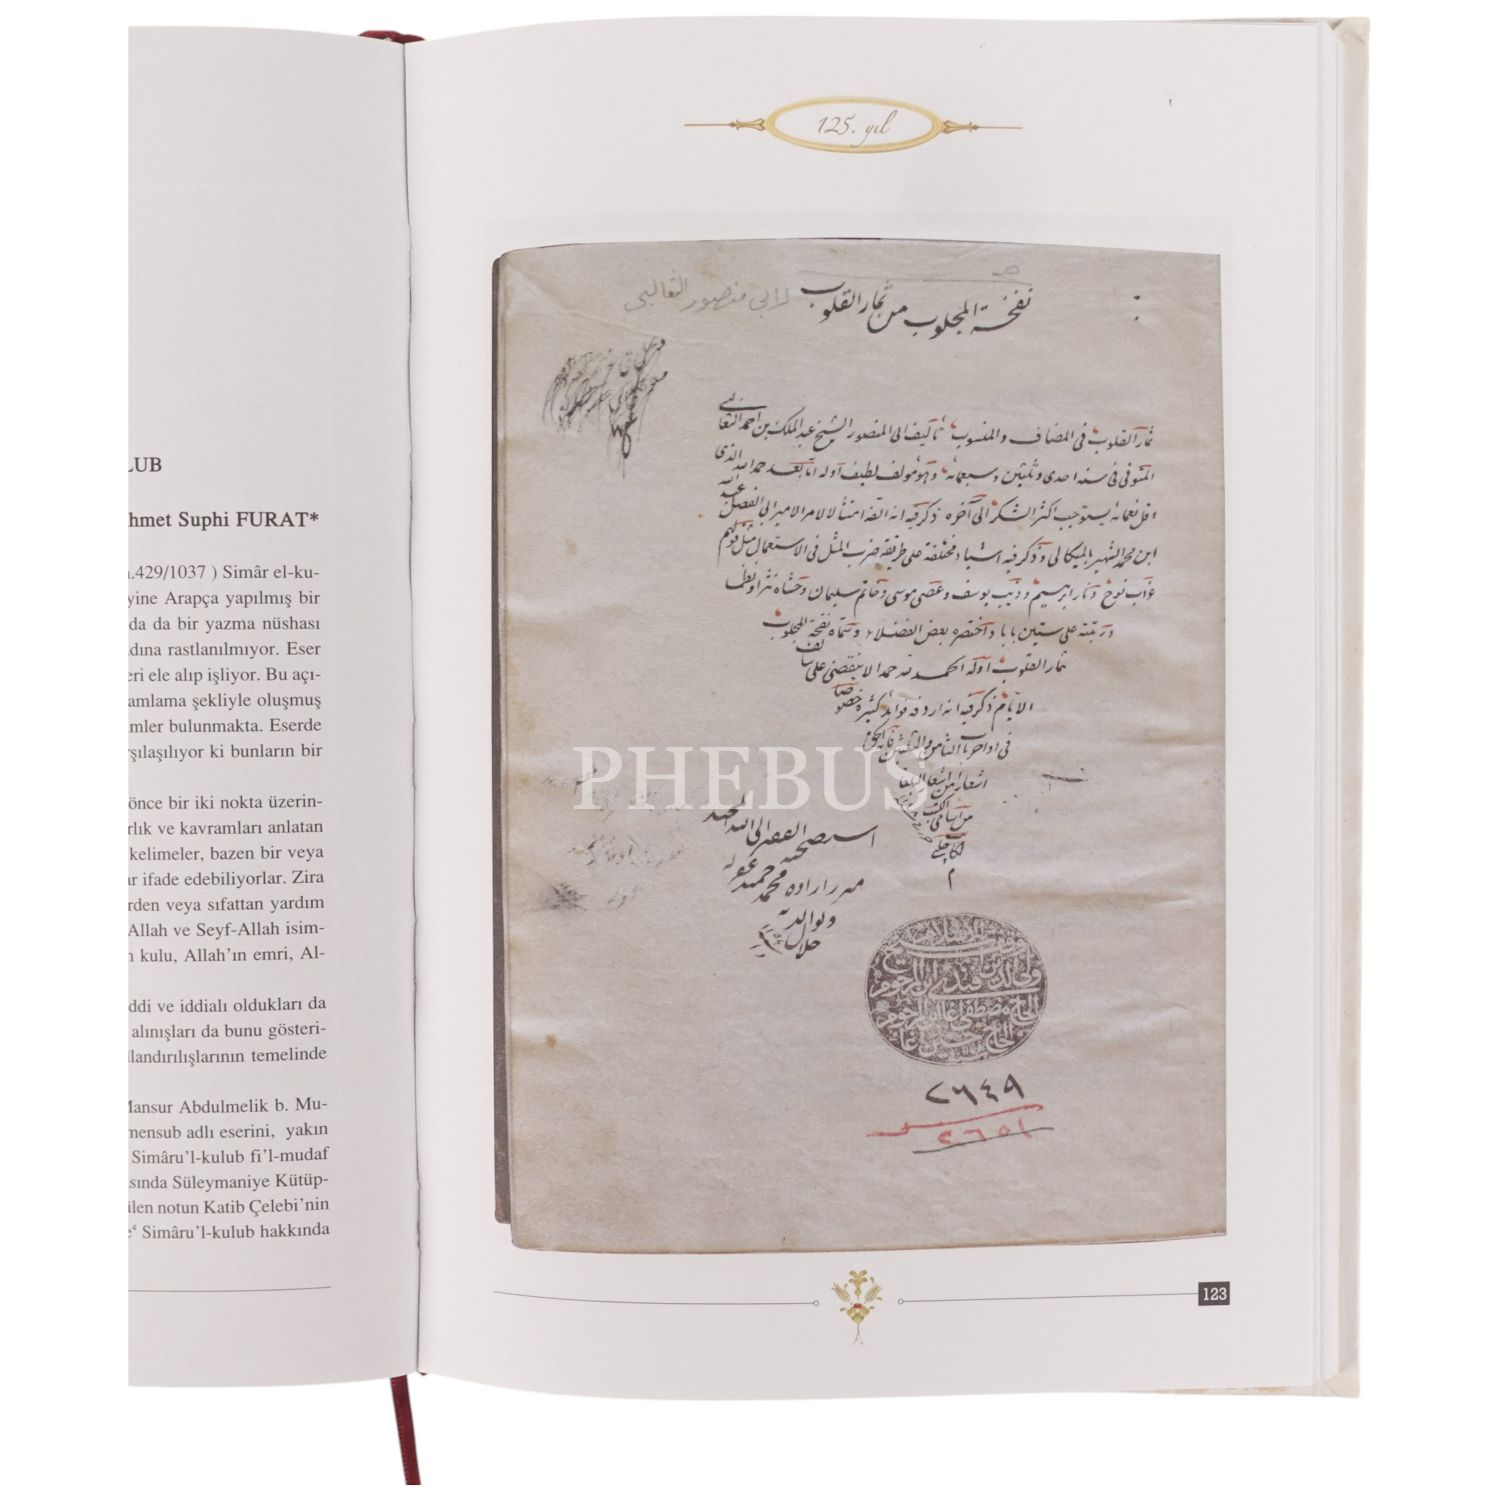 LUB
hmet Suphi FURAT*
.429/1037 ) Simâr el-ku-
yine Arapça yapılmış bir
da da bir yazma nüshası
adına rastlanılmıyor. Eser
eri ele alıp işliyor. Bu açı-
amlama şekliyle oluşmuş
mler bulunmakta. Eserde
rşılaşılıyor ki bunların bir
önce bir iki nokta üzerin-
rlık ve kavramları anlatan
kelimeler, bazen bir veya
ar ifade edebiliyorlar. Zira
rden veya sıfattan yardım
Allah ve Seyf-Allah isim-
n kulu, Allah'ın emri, Al-
ddi ve iddialı oldukları da
alınışları da bunu gösteri-
landırılışlarının temelinde
Mansur Abdulmelik b. Mu-
mensub adlı eserini, yakın
Simâru'l-kulub fi'l-mudaf
asında Süleymaniye Kütüp-
ilen notun Katib Çelebi'nin
e⁴ Simâru'l-kulub hakkında
125. yıl
نفحة المجلوب من ثمار القلوب لابي منصور الثعالبي
ثمار القلوب في المضاف والمنسوب تأليف ابي المنصور الشيخ عبد الملك بن احمد الثعالبي
المتوفى في سنة احدى وثلثين وسبعمائة وهو مؤلف لطيف اوله اما بعد حمد الله الذي
اقل نعمائه يستوجب اكثر الشكر الى آخره ذكر فيه انه الفه امتثالا لامر الامير ابي الفضل عبد الله
ابن محمد الشهير بالميكالي وذكر فيه اشياء مختلفة على طريقة ضرب المثل في الاستعمال مثل قولهم
غراب نوح ونار ابرهيم وذئب يوسف وعصى موسى وخاتم سليمان وحشاه نثرا ونظما
ورتبته على ستين بابا واختصره بعض الفضلاء وسماه نفحة المجلوب
ثمار القلوب اوله الحمد لله حمدا لا ينقضي على سالف
الايام ذكر فيه انه اردفه فوايد كثيرة خصوصا
في اواخر باب الثامن والثلثين فانه الحق
اشعارا من اشعار البلغاء
من اسامي الكتب
لكاتب چلبي
م
استصحبه الفقير الى الله الصمد
ميرزا زاده محمد حميد عفى عنه
ولوالديه
٢٦٤٩
٢٦٥١
PHEBUS
123